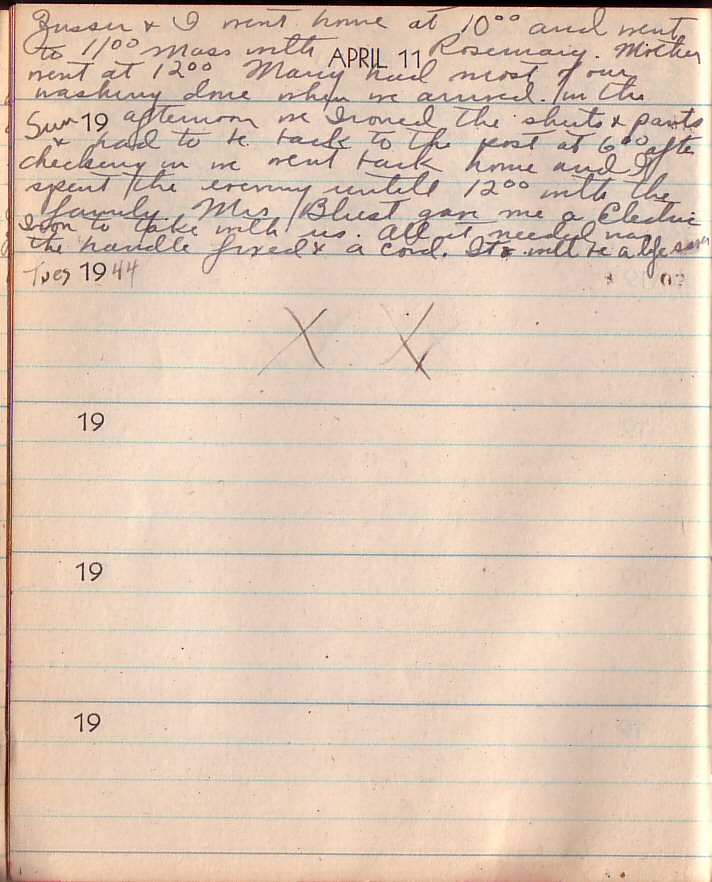 Busser & I went home at 10⁰⁰ and went
to 11⁰⁰ Mass with Rosemary. Mother
APRIL 11
went at 12⁰⁰ Mary had most of our
washing done when we arrived. In the
Sun 19 afternoon we Ironed the shirts & pants
& had to be back to the post at 6⁰⁰ after
checking in we went back home and I
spent the evening untill 12⁰⁰ with the
family. Mrs Blust gave me a Electric
Iron to take with us. All it needed was
the handle fixed & a cord. It will be a life saver
Tues 1944
X X
19
19
19